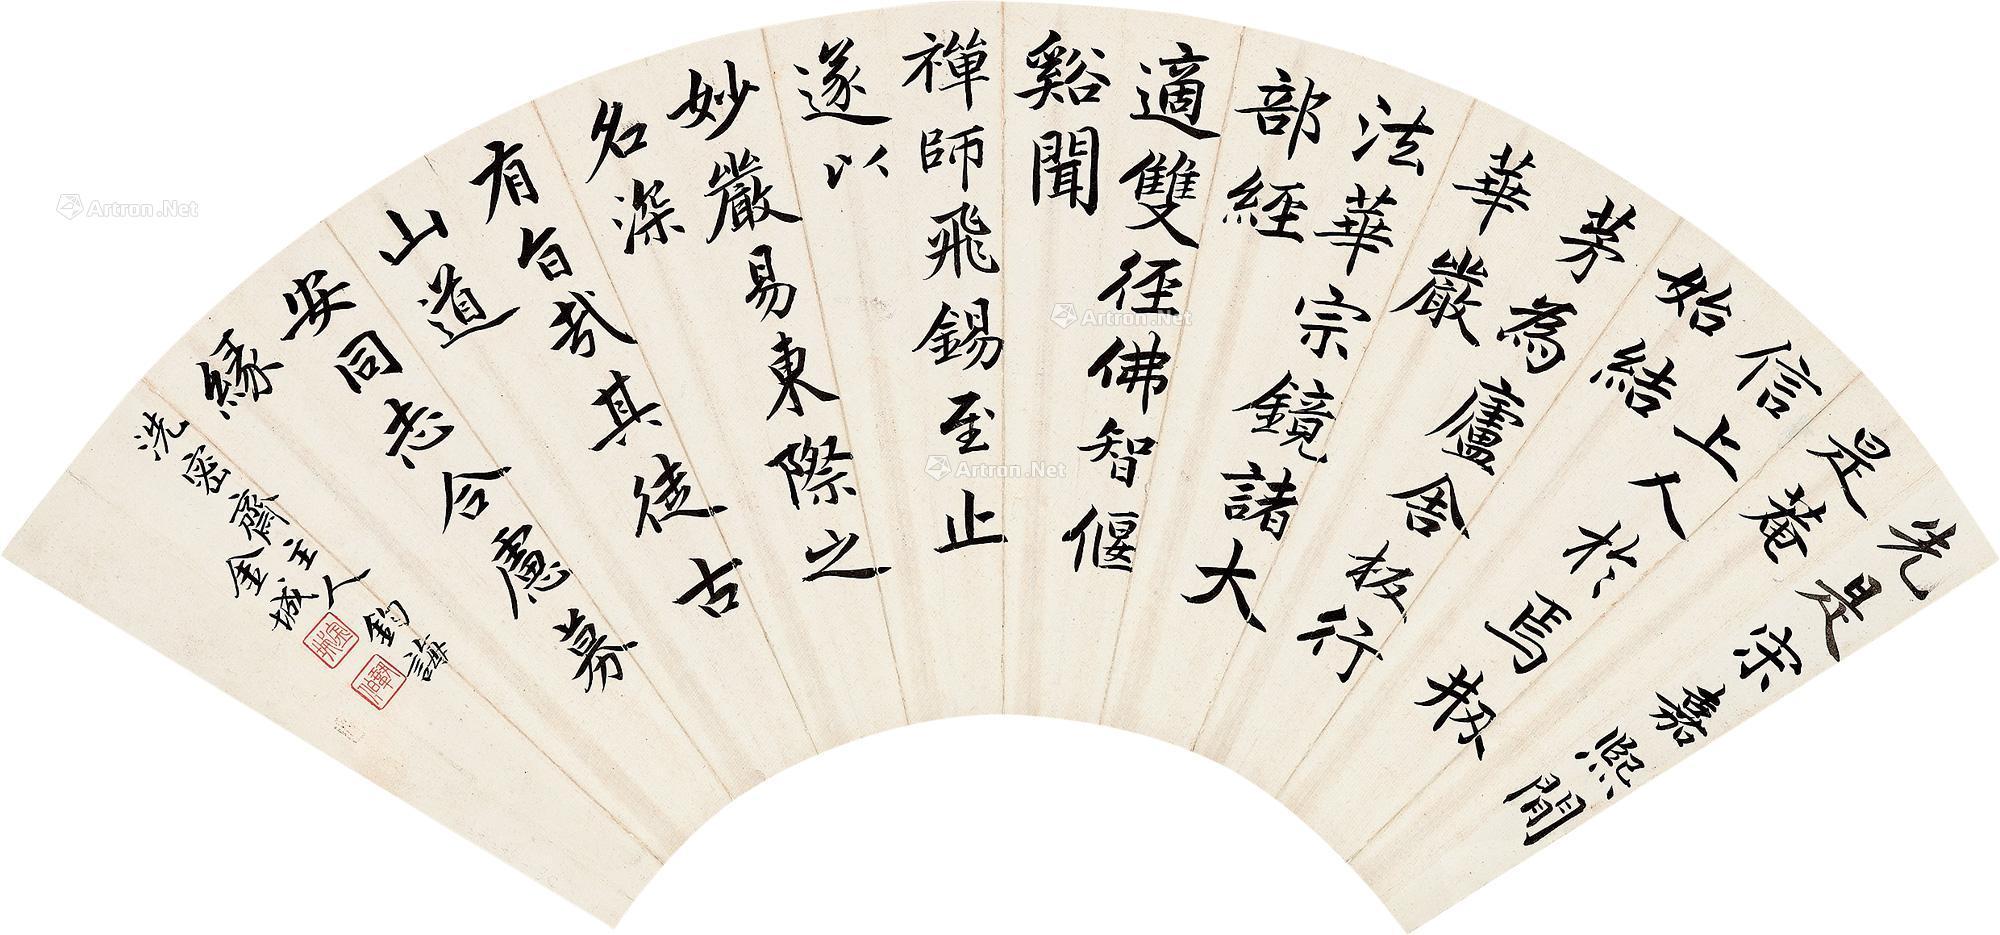 先是宋嘉熙間
是菴
信上人於焉刱
始結
茅為廬舍板行
華嚴
法華宗鏡諸大
部經
適雙徑佛智偃
谿聞
禪師飛錫至止
遂以
妙嚴易東際之
名深
有旨哉其徒古
山道
安同志合慮募
緣
洗密齋主人鈞誨
金城
鞏伯
Artron.Net
Artron.Net
Artron.Net